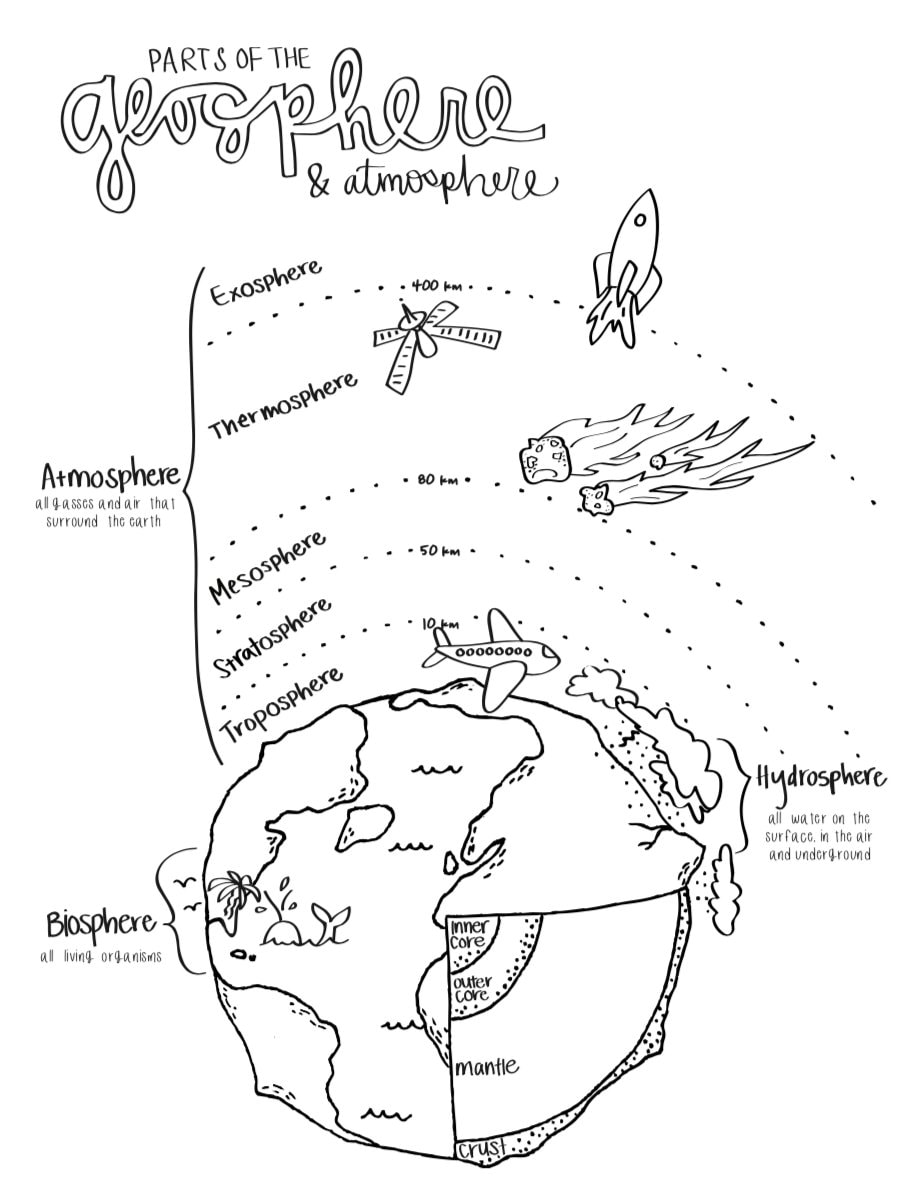 PARTS OF THE
geosphere
& atmosphere
Exosphere
400 km
Thermosphere
Atmosphere
all gasses and air that
surround the earth
80 km
Mesosphere
50 km
Stratosphere
10 km
Troposphere
Hydrosphere
all water on the
surface, in the air
and underground
Biosphere
all living organisms
inner
core
outer
core
mantle
crust